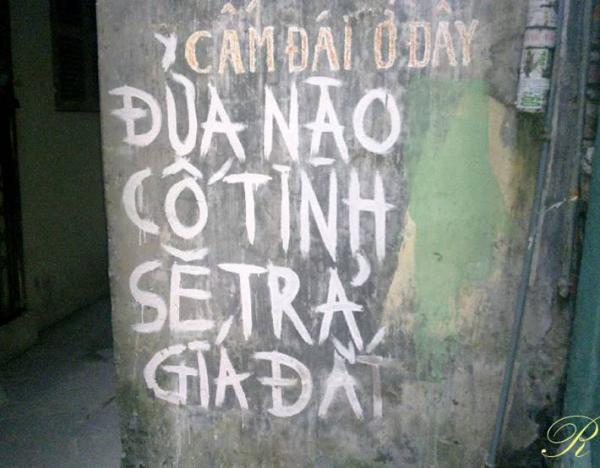 CẤM ĐÁI Ở ĐÂY
ĐÙA NÀO
CỐ TÌNH
SẼ TRẢ
GIÁ ĐẮT
R